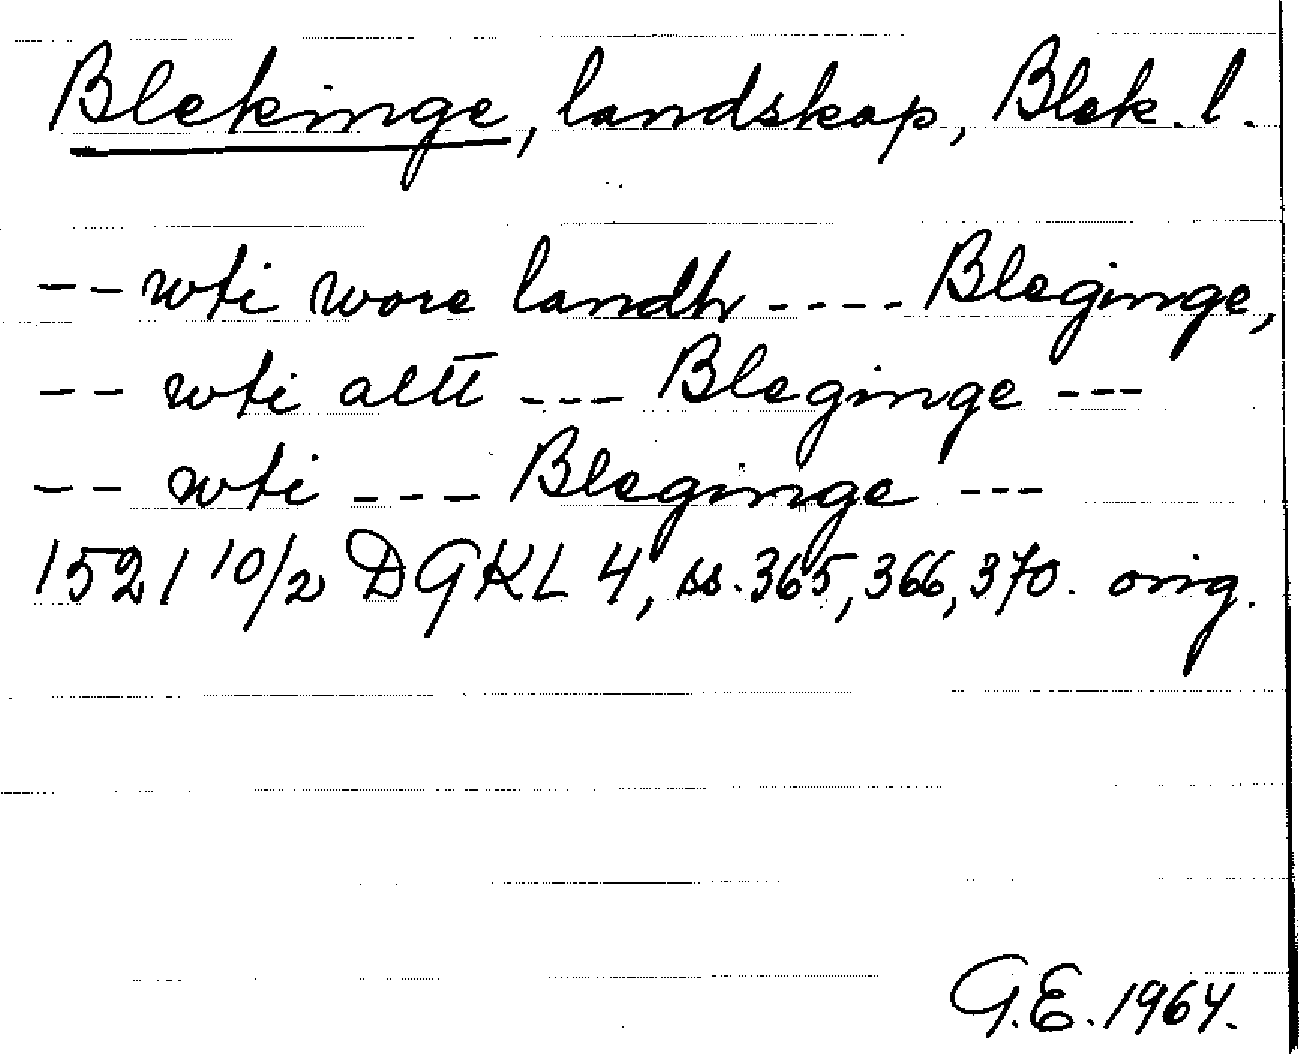 Blekinge, landskap, Blek. l.
-- wti wore landh ---- Bleginge,
-- wti altt --- Bleginge ---
-- wti --- Bleginge ---
1521 10/2 DGKL 4, ss. 365, 366, 370. orig.
G.E. 1964.